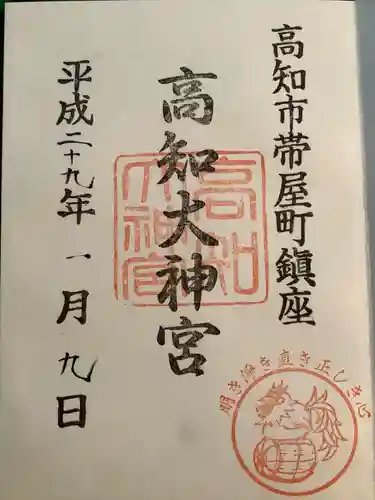 高知市帯屋町鎮座
高知大神宮
平成二十九年一月九日
高知大神宮
明き浄き直き正しき心